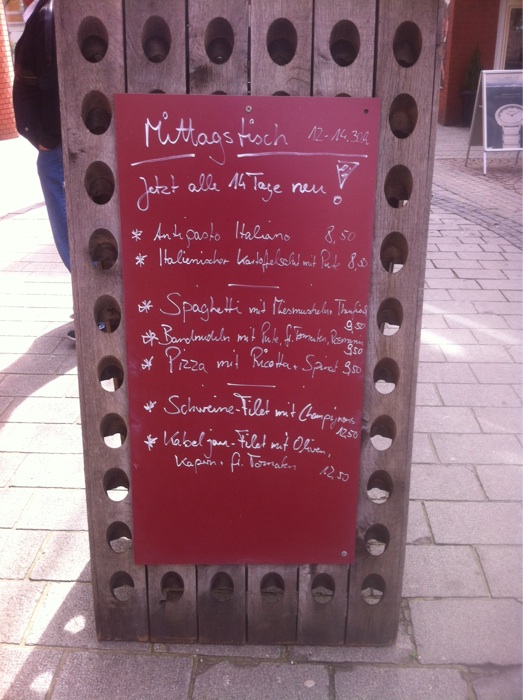 Mittagstisch 12-14.30h
Jetzt alle 14 Tage neu!
* Antipasto Italiano 8,50
* Italienischer Kartoffelsalat mit Pute 8,50
* Spaghetti mit Miesmuscheln
9,50
* Bandnudeln mit Pute, fr. Tomaten, Rosmarin
9,50
* Pizza mit Ricotta + Spinat 9,50
* Schweine-Filet mit Champignons
12,50
* Kabeljau-Filet mit Oliven,
Kapern, fr. Tomaten 12,50